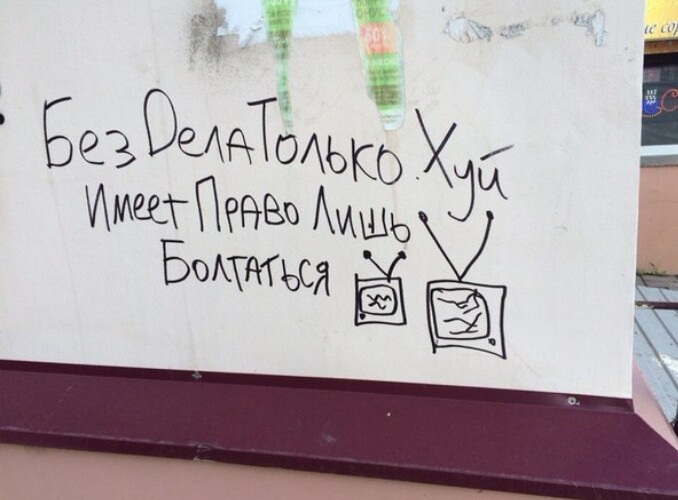 Без Dела Только Хуй
Имеет Право Лишь
Болтаться